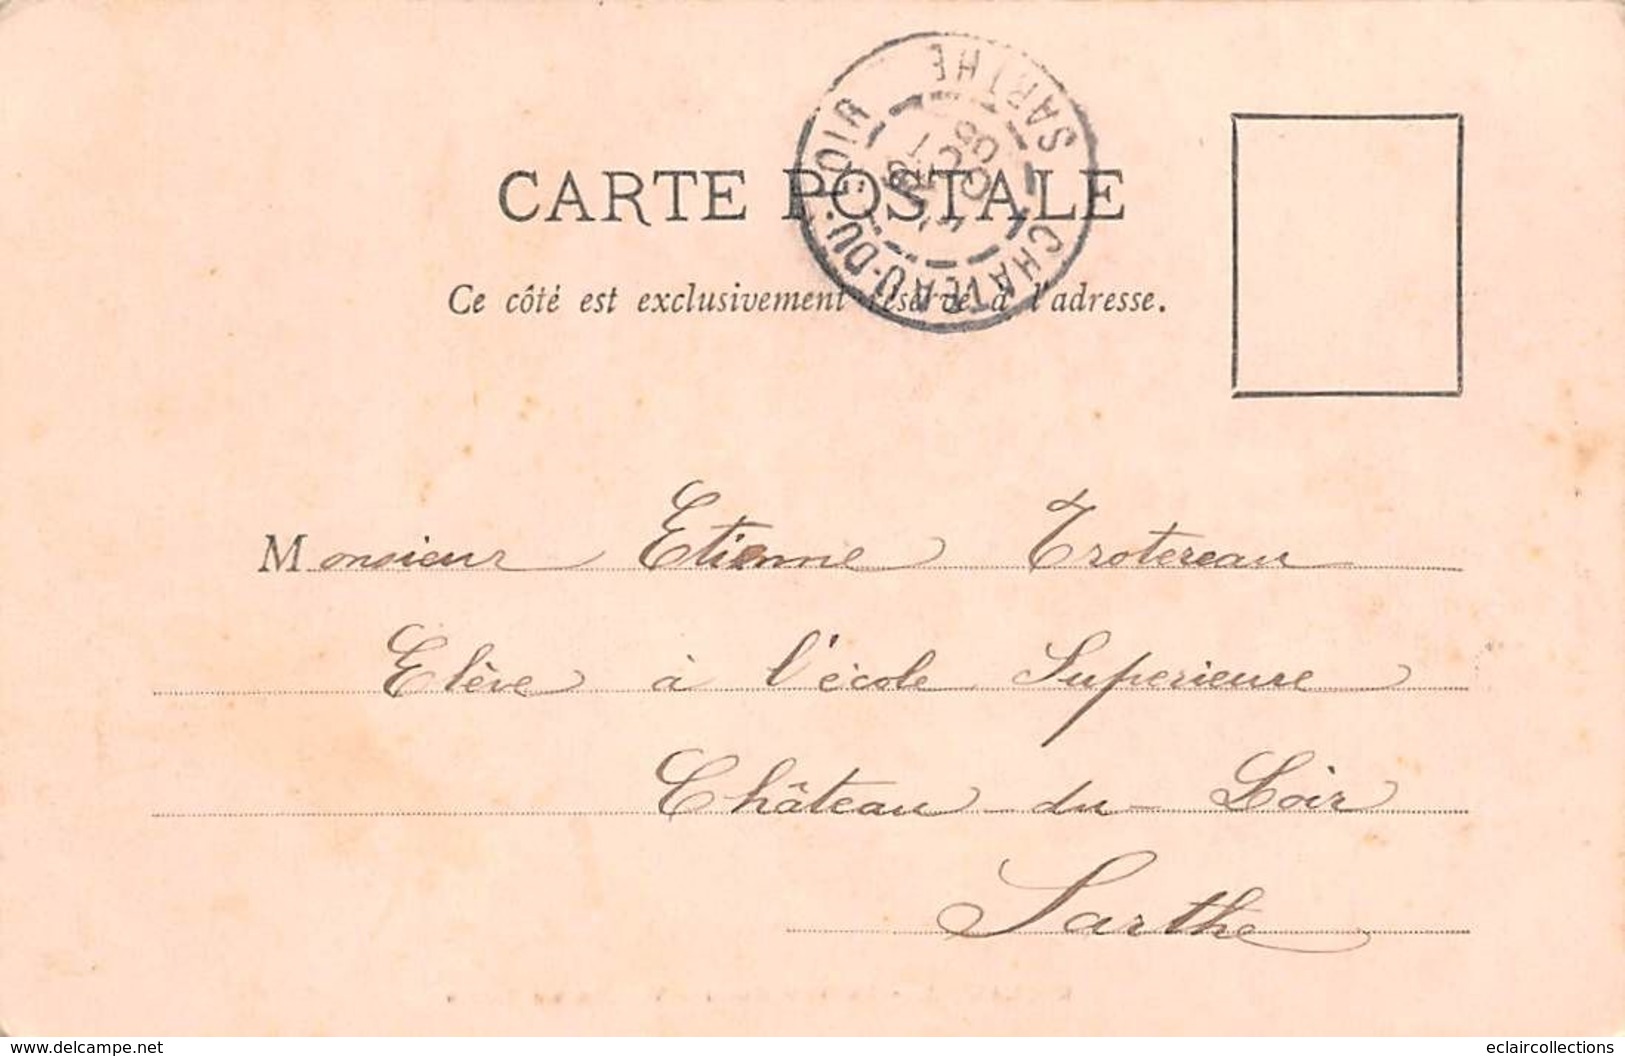 CHATEAU-DU-LOIR
SARTHE
CARTE POSTALE
Ce côté est exclusivement réservé à l'adresse.
Monsieur Etienne Trotereau
Elève à l'école Superieure
Château du Loir
Sarthe
www.delcampe.net
eclaircollections